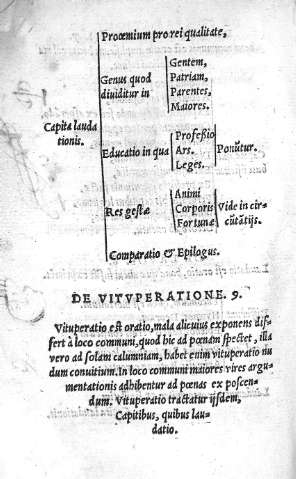 Prooemium pro rei qualitate,
Genus quod
diuiditur in
Gentem,
Patriam,
Parentes,
Maiores.
Capita lauda
tionis.
Educatio in qua
Professio
Ars.
Leges.
Ponūtur.
Res gestæ
Animi
Corporis
Fortunæ
Vide in cir-
cūtātijs.
Comparatio & Epilogus.
DE VITVPERATIONE. 9.
Vituperatio est oratio, mala alicuius exponens dif-
fert à loco communi, quod hic ad pœnam spectet, illa
vero ad solam calumniam, habet enim vituperatio nu
dum conuitium. In loco communi maiores vires argu-
mentationis adhibentur ad pœnas ex poscen-
dum. Vituperatio tractatur ijsdem,
Capitibus, quibus lau-
datio.